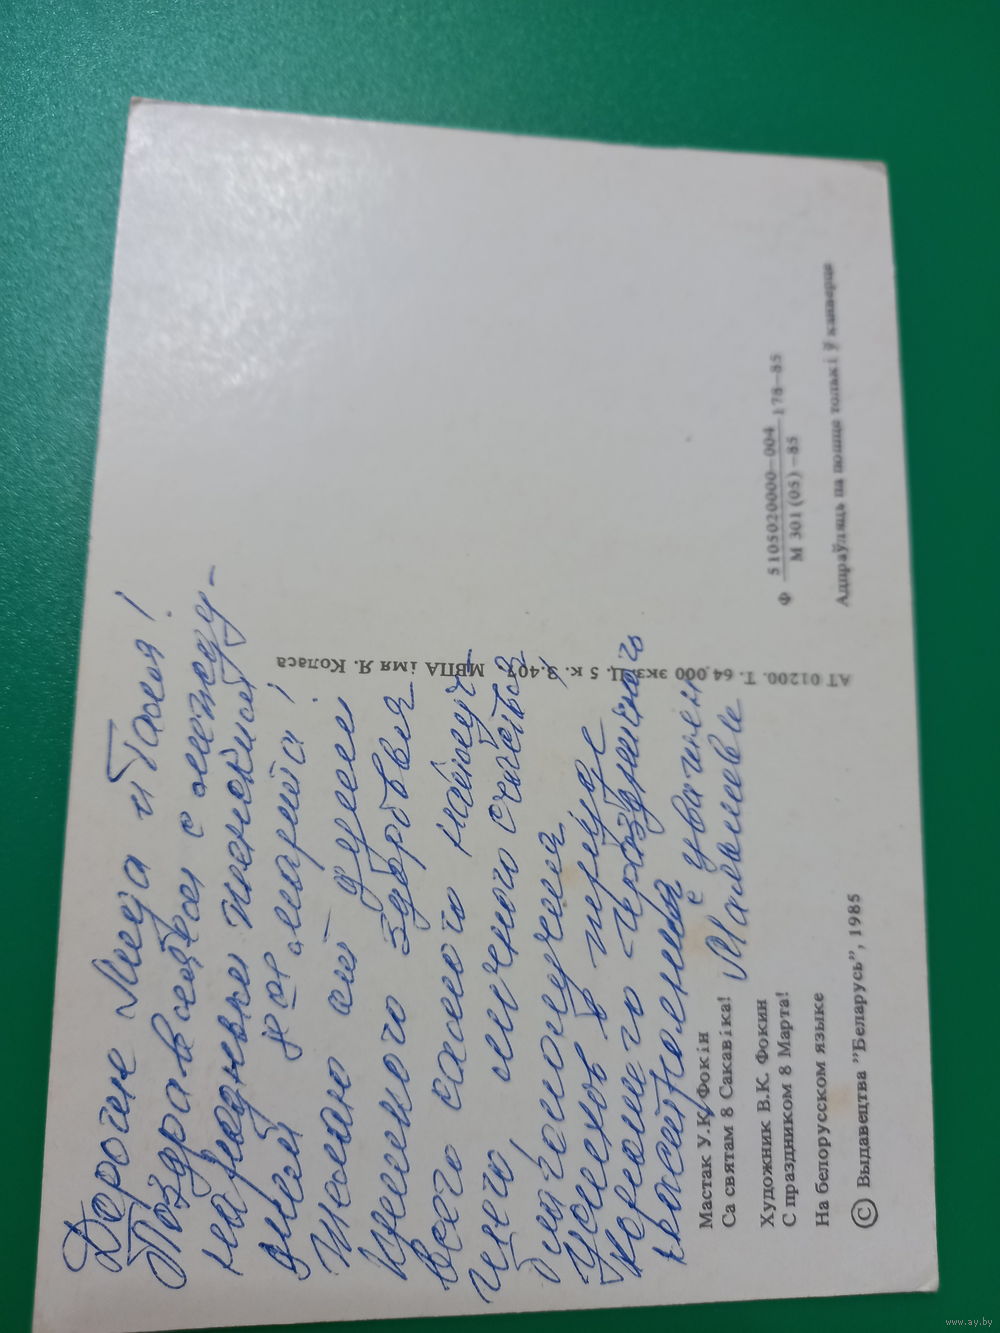 Дорогие Лида и Таня!
Поздравляем с между-
народным женским
днем 8ое марта!
Желаю от души
крепкого здоровья
всего самого наилуч-
шего, личного счастья,
благополучия
успехов в труде
хорошего праздничного
настроения
с уважен
Малышевы
Мастак У.К. Фокін
Са святам 8 Сакавіка!
Художник В.К. Фокин
С праздником 8 Марта!
На белорусском языке
© Выдавецтва "Беларусь", 1985
АТ 01200. Т. 64.000 экз. Ц. 5 к. З.401. МВПА імя Я. Коласа
Ф 5105020000—004 178—85
М 301 (05) —85
Адпраўляць па пошце толькі ў канверце
www.ay.by